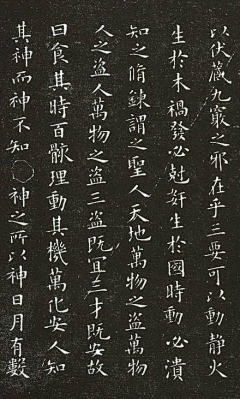 以伏藏九竅之邪在乎三要可以動靜火
生於木禍發必尅奸生於國時動必潰
知之脩鍊謂之聖人天地萬物之盜萬物
人之盜人萬物之盜三盜既冝三才既安故
曰食其時百骸理動其機萬化安人知
其神而神不知○神之所以神日月有數